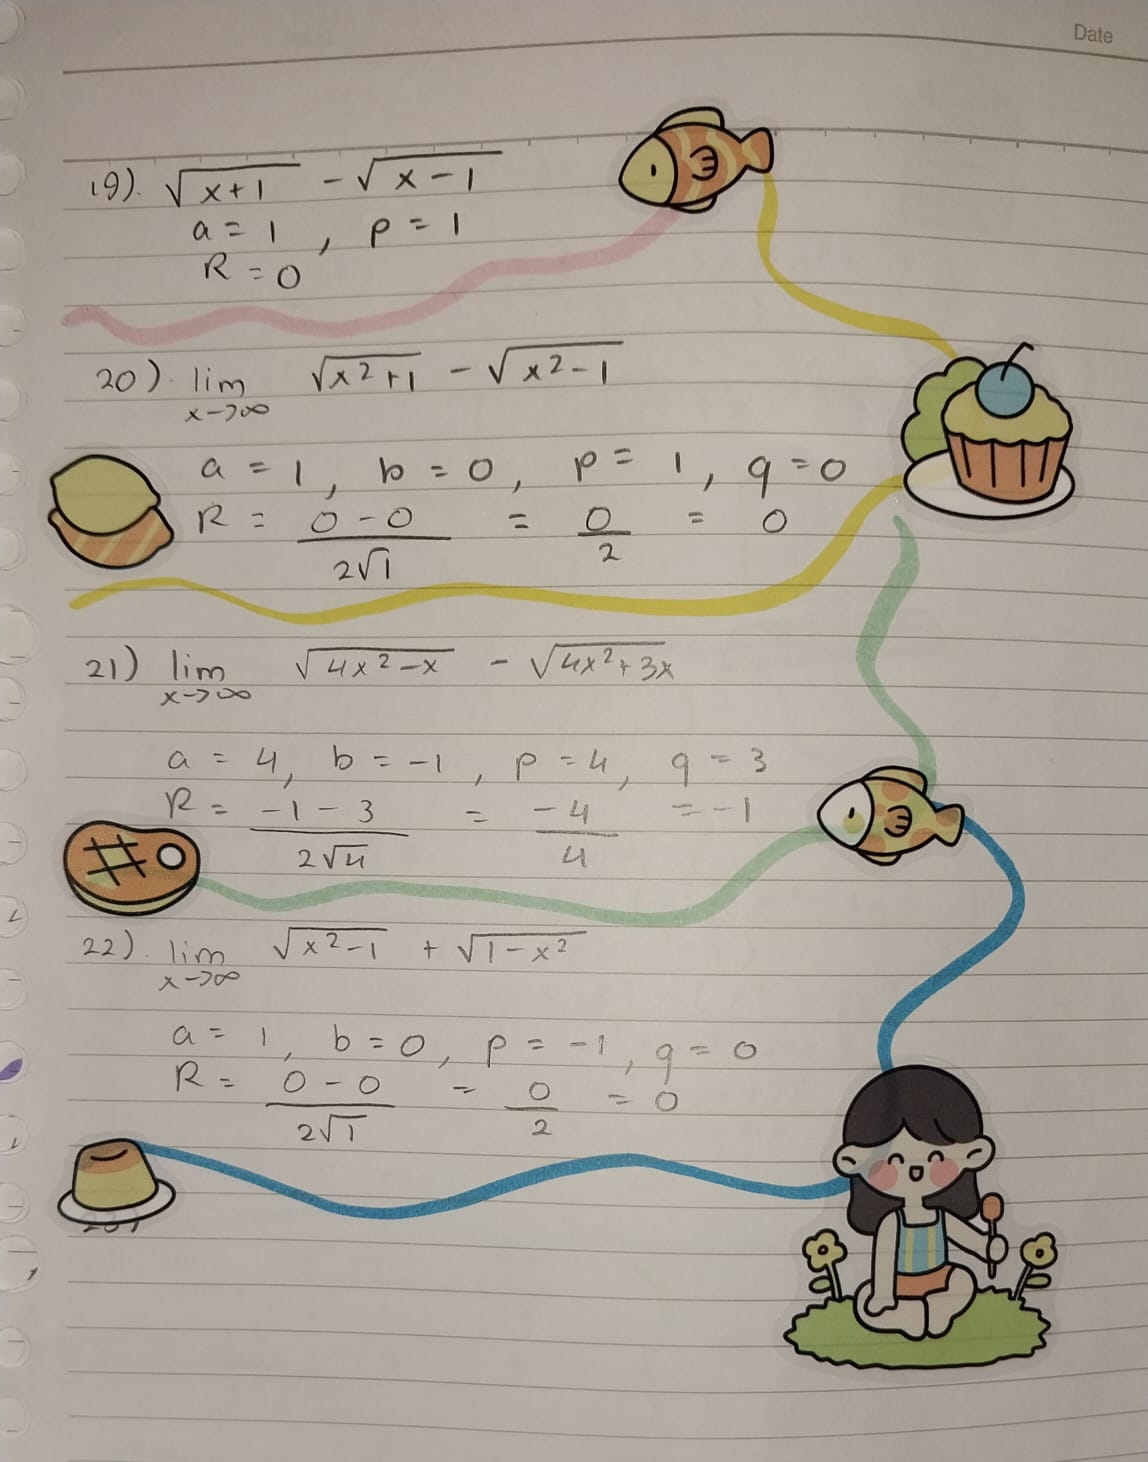 Date
19). √x+1 - √x-1
a = 1 , p = 1
R = 0
20). lim x→∞ √x²+1 - √x²-1
a = 1, b = 0, p = 1, q = 0
R = 0-0 / 2√1 = 0/2 = 0
21) lim x→∞ √4x²-x - √4x²+3x
a = 4, b = -1, p = 4, q = 3
R = -1-3 / 2√4 = -4/4 = -1
22). lim x→∞ √x²-1 + √1-x²
a = 1, b = 0, p = -1, q = 0
R = 0-0 / 2√1 = 0/2 = 0